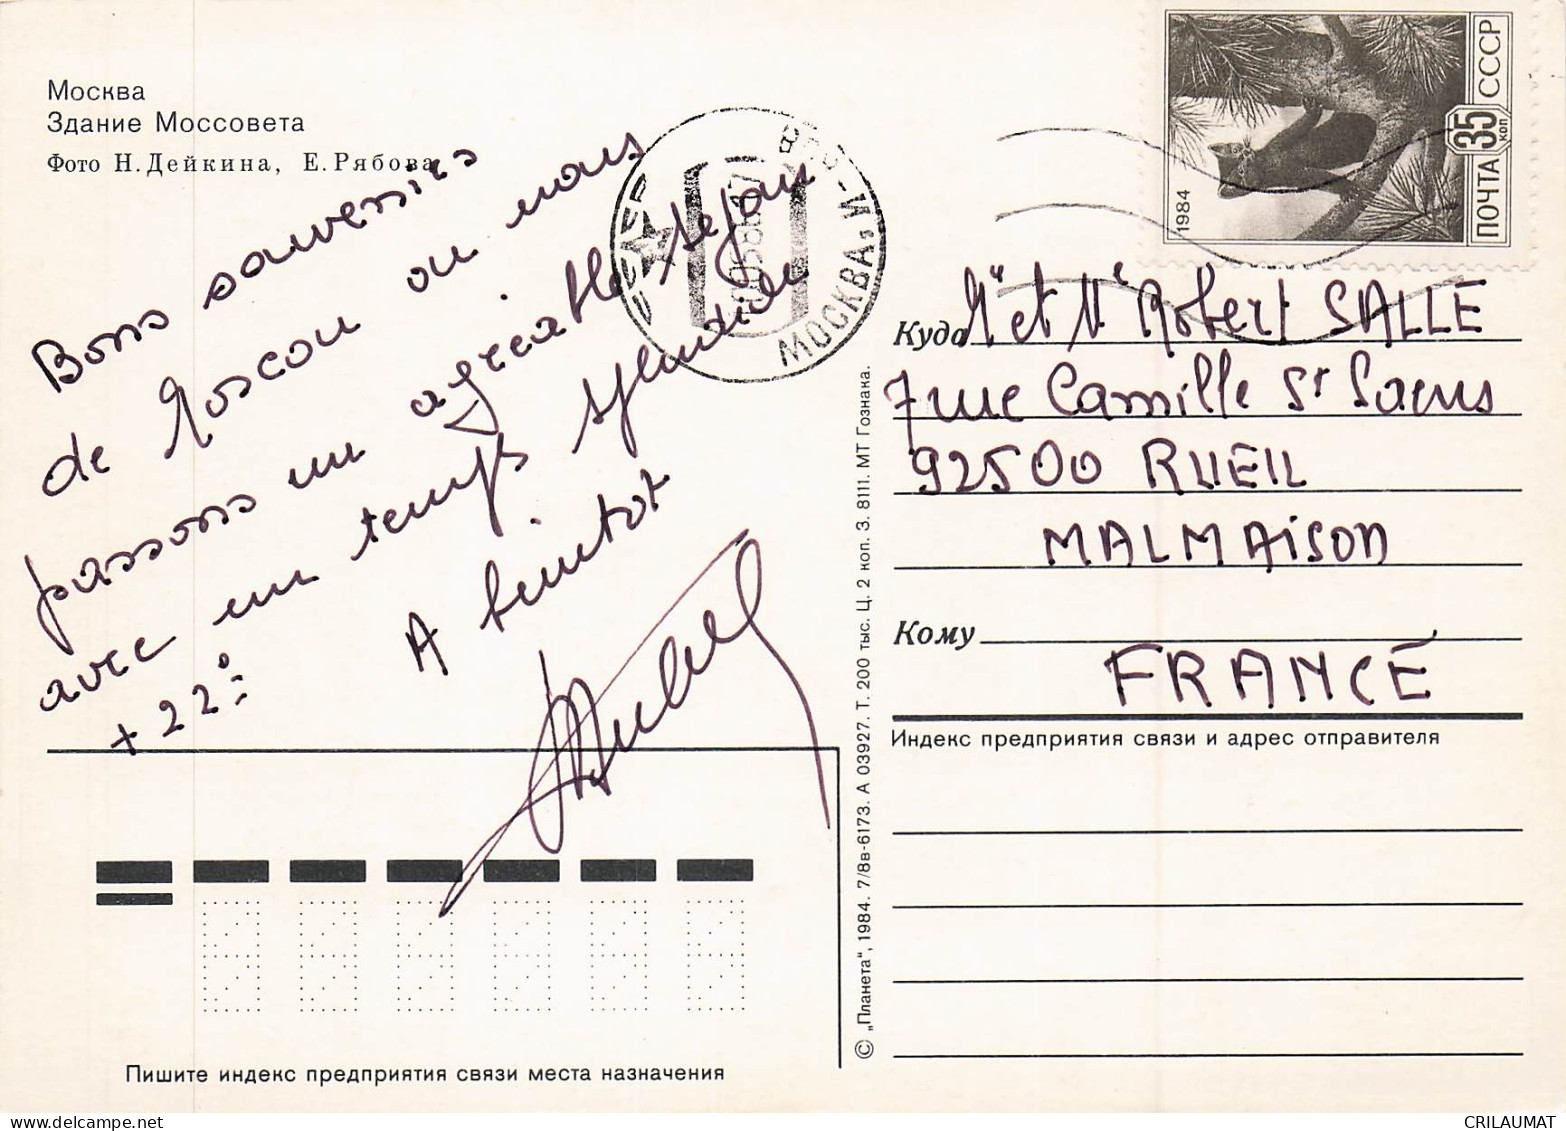 Москва
Здание Моссовета
Фото Н. Дейкина, Е. Рябова
Bons souvenirs
de Moscou où nous
passons un agréable séjour
avec un temps splendide
+ 22°
A bientôt
МОСКВА, И-
1984
ПОЧТА СССР
35 коп
Куда
Mr et Me Robert SALLE
7 rue Camille St Saens
92500 RUEIL
MALMAiSON
Кому
FRANCE
Индекс предприятия связи и адрес отправителя
© „Планета", 1984. 7/8в-6173. А 03927. Т. 200 тыс. Ц. 2 коп. З. 8111. МТ Гознака.
Пишите индекс предприятия связи места назначения
CRILAUMAT